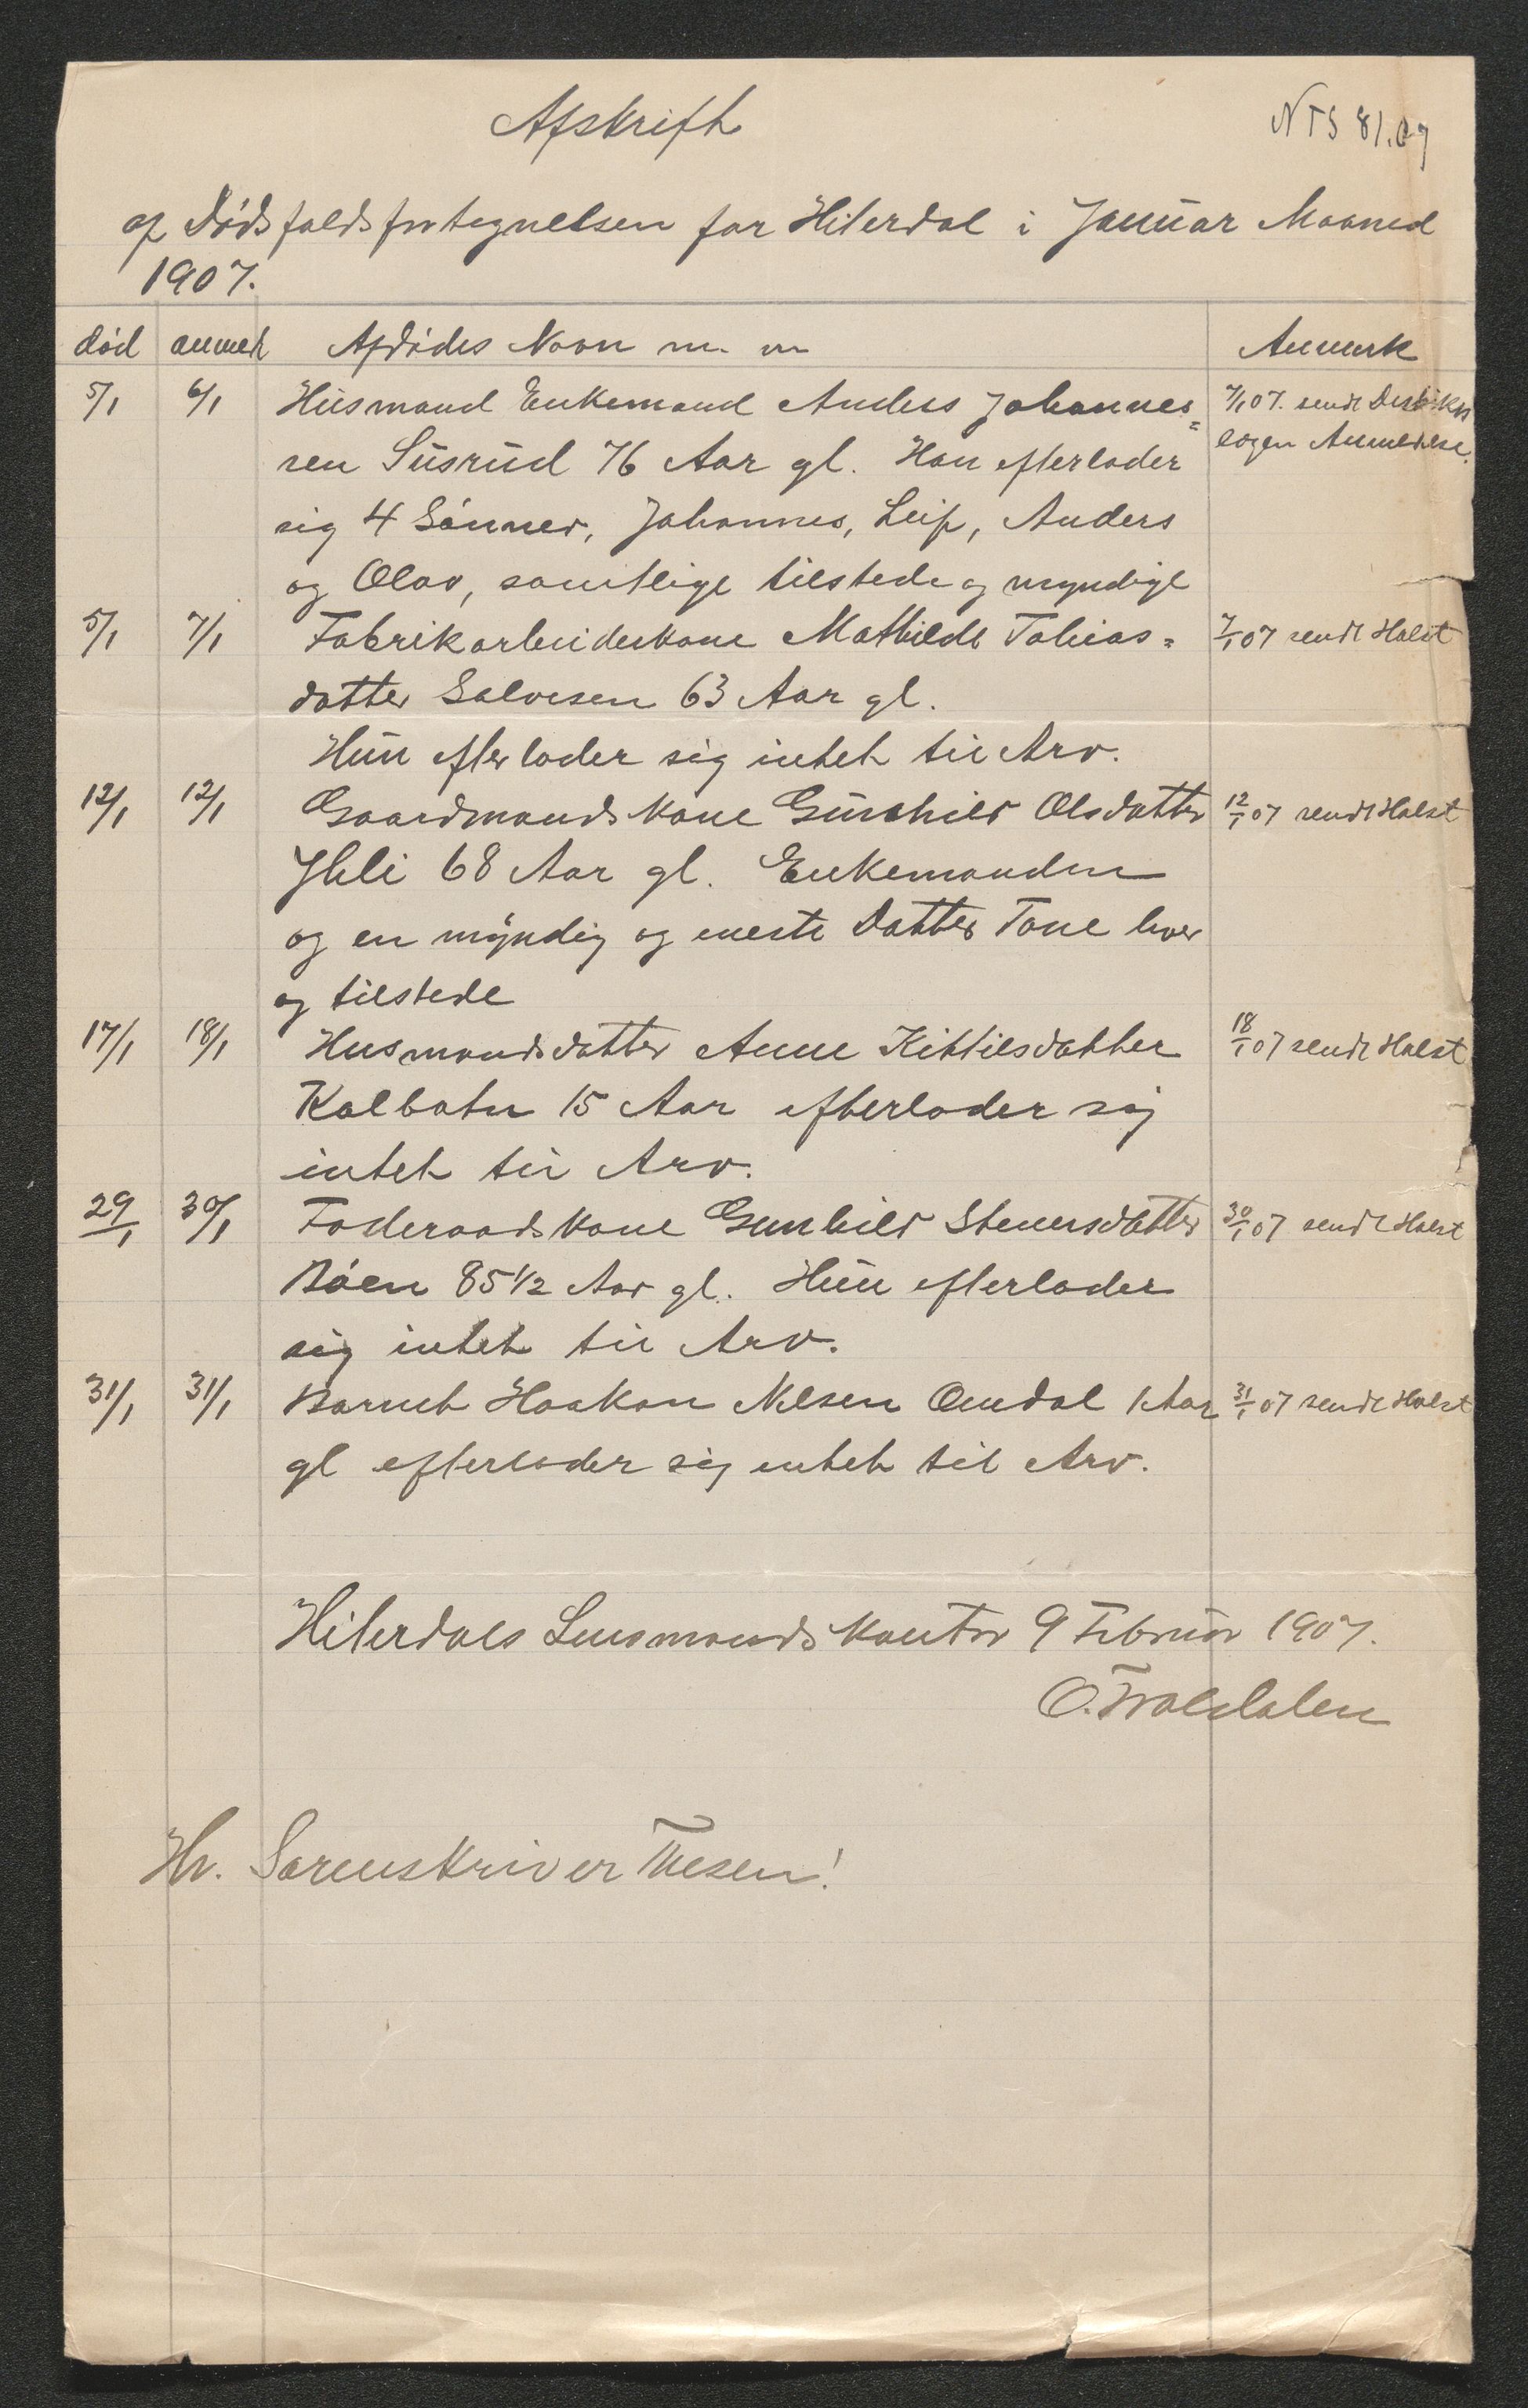 Afskrift
NTS 81.07
af Dødsfaldsfortegnelsen for Hiterdal i Januar Maaned
1907.
død anmeldt Afdødes Navn m. m Anmerk
5/1 6/1 Husmand Enkemand Anders Johannes= 7/1 07. sendt Distrikts
sen Susrud 76 Aar gl. Han efterlader lægen Anmeldelse.
sig 4 Sønner, Johannes, Leif, Anders
og Olav, samtlige tilstede og myndige
5/1 7/1 Fabrikarbeiderkone Mathilde Tobias= 7/1 07 sendt Holst
datter Salvesen 63 Aar gl.
Hun efterlader sig intet til Arv.
12/1 12/1 Gaardmandskone Gunhild Olsdatter 12/1 07 sendt Holst
Ihli 68 Aar gl. Enkemanden
og en myndig og eneste Datter Tone lever
og tilstede
17/1 18/1 Husmandsdatter Anne Kittilsdatter 18/1 07 sendt Holst
Kolbotn 15 Aar efterlader sig
intet til Arv.
29/1 30/1 Foderaadskone Gunhild Stenersdatter 30/1 07 sendt Holst
Bøen 85 1/2 Aar gl. Hun efterlader
sig intet til Arv.
31/1 31/1 Barnet Haakon Nilsen Omdal 1 Aar 31/1 07 sendt Holst
gl efterlader sig intet til Arv.
Hiterdals Lensmandskontor 9 Februar 1907.
O. Troldalen
Hr. Sorenskriver Thesen!